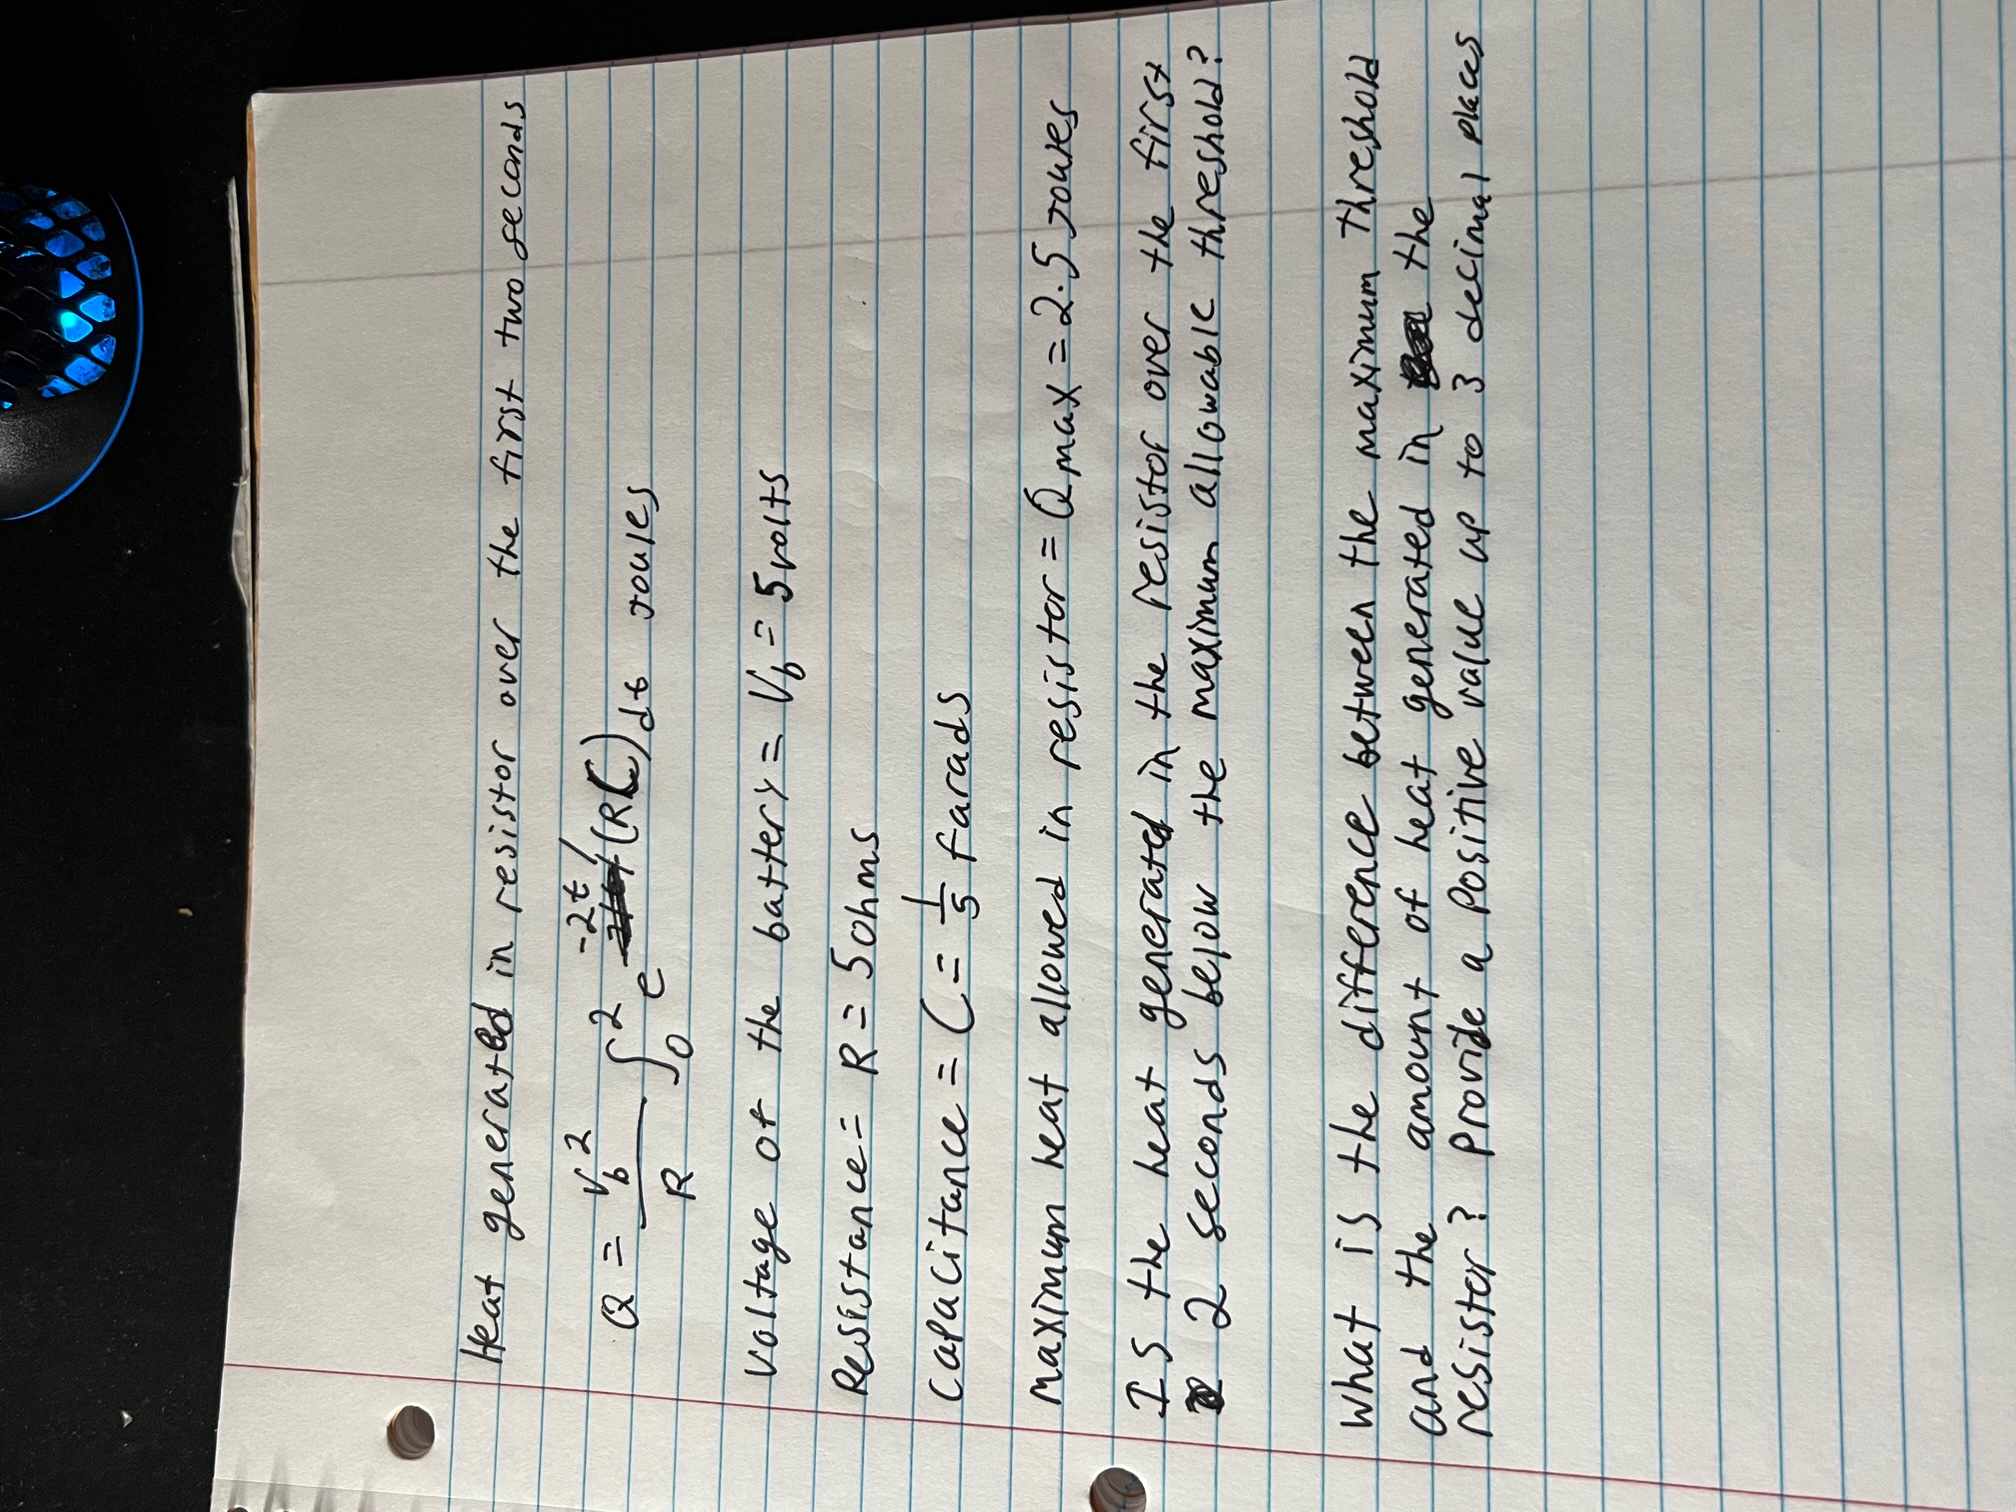 Heat generated in resistor over the first two seconds
Q = V_b^2 / R ∫_0^2 e^{-2t/(RC)} dt Joules
Voltage of the battery = V_b = 5 volts
Resistance = R = 5 ohms
Capacitance = C = 1/5 farads
Maximum heat allowed in resistor = Qmax = 2.5 Joules
Is the heat generated in the resistor over the first
2 seconds below the maximum allowable threshold?
What is the difference between the maximum threshold
and the amount of heat generated in the
resistor? Provide a positive value up to 3 decimal places